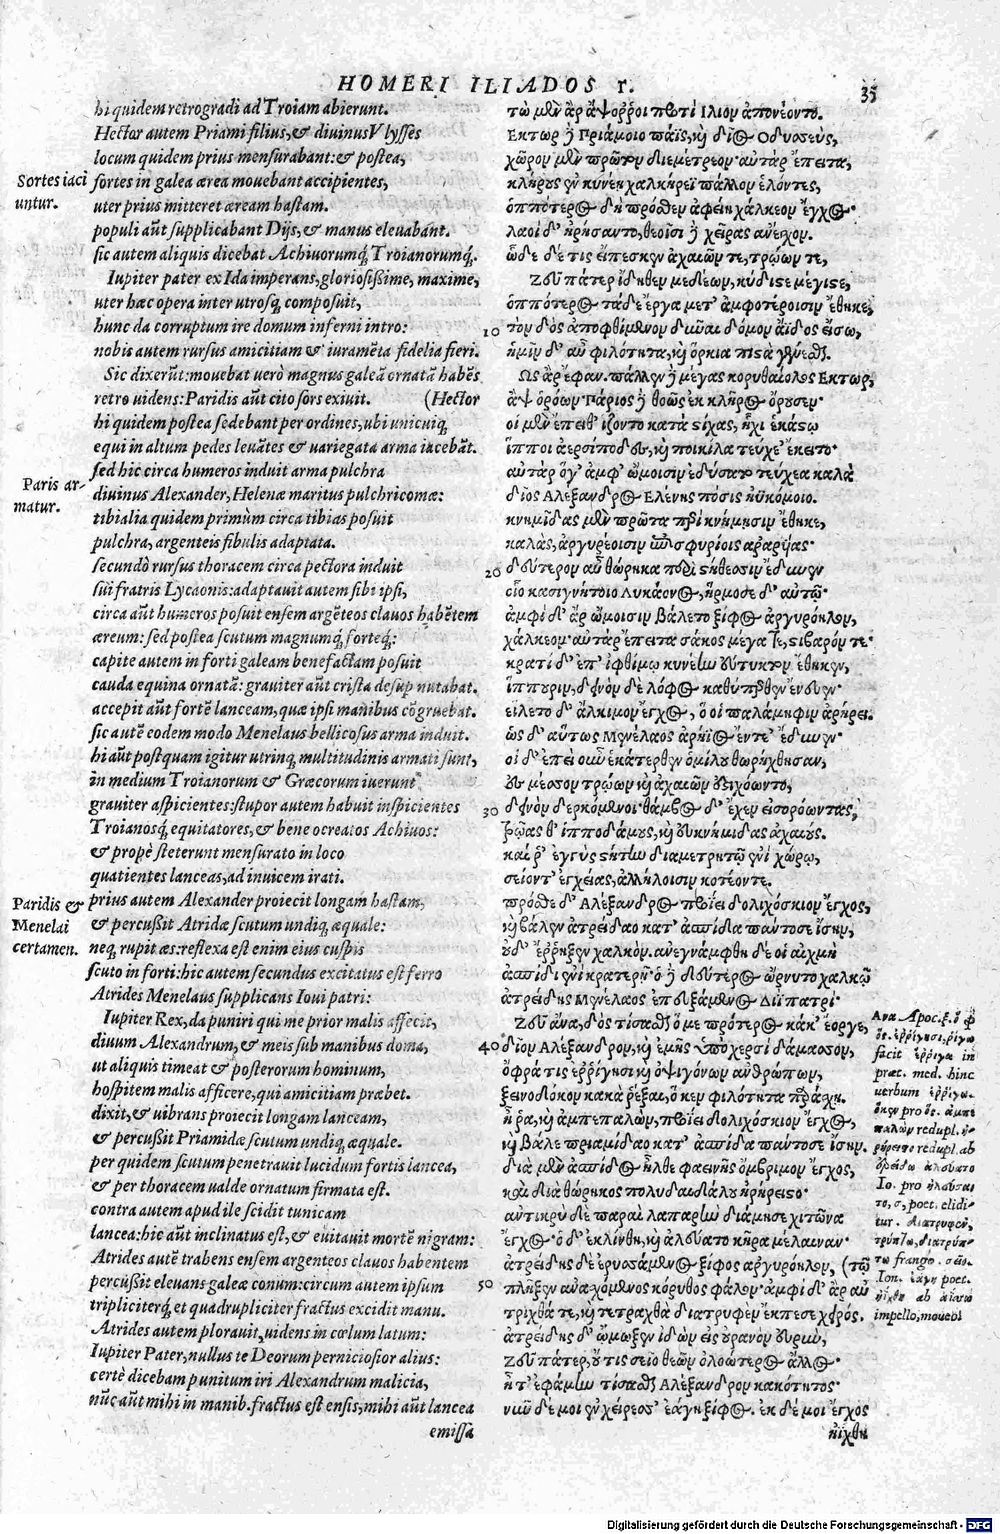 HOMERI ILIADOS Γ.
35
hi quidem retrogradi ad Troiam abierunt.
Hector autem Priami filius,& divinus Vlysses
locum quidem prius mensurabant:& postea,
sortes in galea ærea movebant accipientes,
uter prius mitteret æream hastam.
populi aũt supplicabant Dijs,& manus elevabant.
sic autem aliquis dicebat Achivorumq́, Troianorumq́.
Iupiter pater ex Ida imperans, gloriosissime, maxime,
uter hæc opera inter utrosq, composuit,
hunc da corruptum ire domum inferni intro:
nobis autem rursus amicitiam & iuramẽta fidelia fieri.
Sic dixerũt: movebat verò magnus galeã ornatã habẽs
retro videns: Paridis aũt cito sors exivit. (Hector
hi quidem postea sedebant per ordines, ubi unicuiq,
equi in altum pedes levãtes & variegata arma iacebãt.
sed hic circa humeros induit arma pulchra
divinus Alexander, Helenæ maritus pulchricomæ:
tibialia quidem primùm circa tibias posuit
pulchra, argenteis fibulis adaptata.
secundò rursus thoracem circa pectora induit
sui fratris Lycaonis: adaptavit autem sibi ipsi,
circa aũt humeros posuit ensem argẽteos clavos habẽtem
æreum: sed postea scutum magnumq́, forteq́;
capite autem in forti galeam benefactam posuit
cauda equina ornatã: graviter aũt crista desup nutabat.
accepit aũt fortẽ lanceam, quæ ipsi manibus cõgruebat.
sic autẽ eodem modo Menelaus bellicosus arma induit.
hi aũt postquam igitur utrinq, multitudinis armati sunt,
in medium Troianorum & Græcorum iverunt
graviter aspicientes: stupor autem habuit inspicientes
Troianosq́, equitatores,& bene ocreatos Achivos:
& propè steterunt mensurato in loco
quatientes lanceas, ad invicem irati.
prius autem Alexander proiecit longam hastam,
& percussit Atridæ scutum undiq, æquale:
neq, rupit æs: reflexa est enim eius cuspis
scuto in forti: hic autem secundus excitatus est ferro
Atrides Menelaus supplicans Iovi patri:
Iupiter Rex, da puniri qui me prior malis affecit,
divum Alexandrum,& meis sub manibus doma,
ut aliquis timeat & posterorum hominum,
hospitem malis afficere, qui amicitiam præbet.
dixit,& vibrans proiecit longam lanceam,
& percussit Priamidæ scutum undiq, æquale.
per quidem scutum penetravit lucidum fortis lancea,
& per thoracem valde ornatum firmata est.
contra autem apud ile scidit tunicam
lancea: hic aũt inclinatus est,& evitavit mortẽ nigram:
Atrides autẽ trahens ensem argenteos clavos habentem
percussit elevans galeæ conum: circum autem ipsum
tripliciterq́, et quadrupliciter fractus excidit manu.
Atrides autem ploravit, videns in cœlum latum:
Iupiter Pater, nullus te Deorum perniciosior alius:
certè dicebam punitum iri Alexandrum malicia,
nũc aũt mihi in manib. fractus est ensis, mihi aũt lancea
emissa
Sortes iaci
untur.
Paris ar-
matur.
Paridis &
Menelai
certamen.
τὼ μὲν ἂρ ἄψοῤῥοι προτὶ Ιλιον ἀπονέοντο.
Εκτωρ ϳ Πριάμοιο πάϊς, καὶ δῖος Οδυσεὺς,
χῶρον μὲν πρῶτον διεμέτρεον· αὐτὰρ ἔπειτα,
κλήρους ἐν κυνέῃ χαλκήρεϊ πάλλον ἑλόντες,
ὁππότερος δὴ πρόσθεν ἀφείη χάλκεον ἔγχος·
λαοὶ δ' ἠρήσαντο, θεοῖσι ϳ χεῖρας ἀνέχον.
ὧδε δέ τις εἴπεσκεν ἀχαιῶν τε, τρώων τε,
Ζεῦ πάτερ ἴδηθεν μεδέων, κύδιστε μέγιστε,
ὁππότερος τάδε ἔργα μετ' ἀμφοτέροισιν ἔθηκε,
10 τὸν δὸς ἀποφθίμενον δῦναι δόμον ἄϊδος εἴσω,
ἡμῖν δ' αὖ φιλότητα, καὶ ὅρκια πιστὰ γενέσθαι.
Ως ἂρ ἔφαν. πάλλεν ϳ μέγας κορυθαίολος Εκτωρ,
ἂψ ὁρόων· Πάριος ϳ θοῶς ἐκ κλῆρος ὄρουσεν·
οἱ μὲν ἔπειθ' ἵζοντο κατὰ στίχας, ἧχι ἑκάστῳ
ἵπποι ἀερσίποδες, καὶ ποικίλα τεύχε' ἔκειτο·
αὐτὰρ ὅγ' ἀμφ' ὤμοισιν ἐδύσατο τεύχεα καλὰ
δῖος Αλέξανδρος Ελένης πόσις ἠϋκόμοιο.
κνημῖδας μὲν πρῶτα περὶ κνήμησιν ἔθηκε,
καλὰς, ἀργυρέοισιν ἐπισφυρίοις ἀραρυίας·
20 δεύτερον αὖ θώρηκα περὶ στήθεσσιν ἔδυνεν
οἷο κασιγνήτοιο Λυκάονος, ἥρμοσε δ' αὐτῷ·
ἀμφὶ δ' ἂρ ὤμοισιν βάλετο ξίφος ἀργυρόηλον,
χάλκεον· αὐτὰρ ἔπειτα σάκος μέγα τε, στιβαρόν τε·
κρατὶ δ' ἐπ' ἰφθίμῳ κυνέην εὔτυκτον ἔθηκεν,
ἵππουριν, δεινὸν δὲ λόφος καθύπερθεν ἔνευεν·
εἵλετο δ' ἄλκιμον ἔγχος, ὅ οἱ παλάμηφιν ἀρήρει.
ὣς δ' αὔτως Μενέλαος ἀρήϊος ἔντε' ἔδυνεν·
οἱ δ' ἐπεὶ οὖν ἑκάτερθεν ὁμίλου θωρήχθησαν,
ἐς μέσσον τρώων καὶ ἀχαιῶν ἐστιχόωντο,
30 δεινὸν δερκόμενοι· θάμβος δ' ἔχεν εἰσορόωντας,
τρῶας θ' ἱπποδάμους, καὶ ἐϋκνήμιδας ἀχαιούς.
καί ῥ' ἐγγὺς στήτην διαμετρητῷ ἐνὶ χώρῳ,
σείοντ' ἐγχείας, ἀλλήλοισιν κοτέοντε.
πρόσθε δ' Αλέξανδρος προΐει δολιχόσκιον ἔγχος,
καὶ βάλεν ἀτρείδαο κατ' ἀσπίδα πάντοσε ἴσην,
οὐδ' ἔῤῥηξεν χαλκὸν. ἀνεγνάμφθη δέ οἱ αἰχμὴ
ἀσπίδι ἐνὶ κρατερῇ· ὁ ϳ δεύτερος ὤρνυτο χαλκῷ
ἀτρείδης Μενέλαος ἐπευξάμενος Διῒ πατρὶ·
Ζεῦ ἄνα, δὸς τίσασθαι ὅ με πρότερος κάκ' ἔοργε,
40 δῖον Αλέξανδρον, καὶ ἐμῇς ὑπὸ χερσὶ δάμασσον,
ὄφρά τις ἐῤῥίγῃσι καὶ ὀψιγόνων ἀνθρώπων,
ξεινοδόκον κακὰ ῥέξαι, ὅ κεν φιλότητα παράσχῃ.
ἦ ῥα, καὶ ἀμπεπαλὼν, προΐει δολιχόσκιον ἔγχος,
καὶ βάλε πριαμίδαο κατ' ἀσπίδα πάντοσε ἴσην.
διὰ μὲν ἀσπίδος ἦλθε φαεινῆς ὄμβριμον ἔγχος,
καὶ διὰ θώρηκος πολυδαιδάλου ἠρήρειστο·
ἀντικρὺ δὲ παραὶ λαπάρην διάμησε χιτῶνα
ἔγχος· ὁ δ' ἐκλίνθη, καὶ ἀλεύατο κῆρα μέλαιναν·
ἀτρείδης δὲ ἐρυσσάμενος ξίφος ἀργυρόηλον, (τῷ
50 πλῆξεν ἀναχόμενος κόρυθος φάλον· ἀμφὶ δ' ἂρ αὐ
τριχθά τε, καὶ τετραχθὰ διατρυφὲν ἔκπεσε χειρός.
ἀτρείδης δ' ὤμωξεν ἰδὼν εἰς οὐρανὸν εὐρὺν,
Ζεῦ πάτερ, οὔ τις σεῖο θεῶν ὀλοώτερος ἄλλος·
ἦ τ' ἐφάμην τίσασθαι Αλέξανδρον κακότητος·
νῦν δέ μοι ἐν χείρεσσ' ἐάγη ξίφος. ἐκ δέ μοι ἔγχος
ἠΐχθη
Ανα. Apoc. ξ. ὃ ϕ
ὅς. ἐῤῥίγησι, ῥίγω
facit ἔῤῥιγα in
præt. med. hinc
verbum ἐῤῥίγω.
ὅκεν pro ὅς. ἀμπε
παλὼν redupl. ἠ-
ρήρειστο redupl. ab
ἐρείδω ἀλεύατο
Io. pro ἠλεύσα
το, σ, poet. elidi-
tur. διατρυφὲν,
τρύπτω, διατρύπ-
τω frango.
Ion. ἐάγη poet.
ἠΐχθη ab ἀΐσσω
impello, movebi
Digitalisierung gefördert durch die Deutsche Forschungsgemeinschaft - DFG